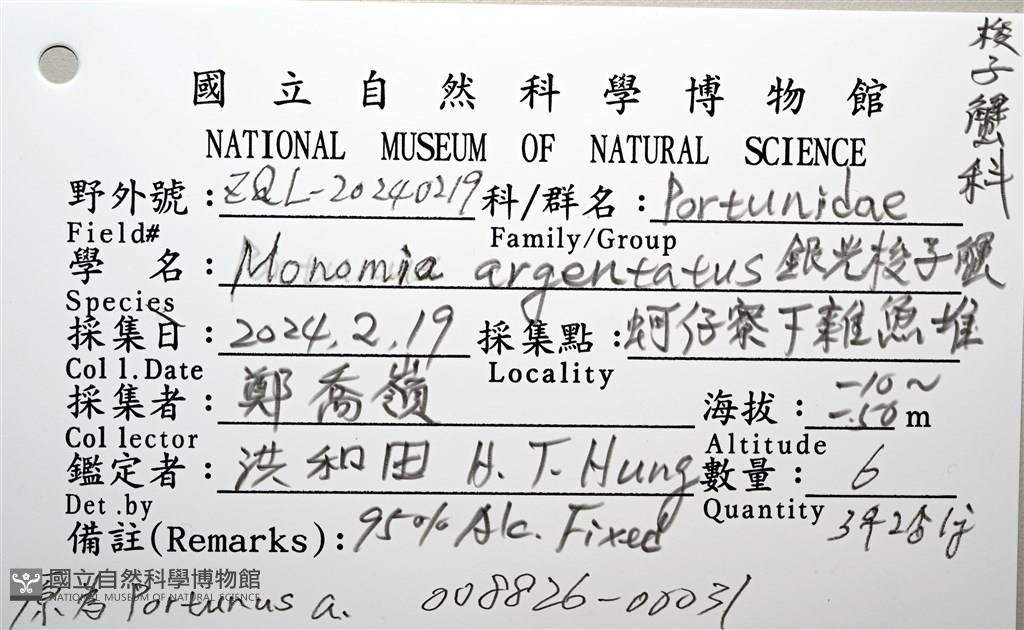 梭子蟹科
國立自然科學博物館
NATIONAL MUSEUM OF NATURAL SCIENCE
野外號：ZQL-20240219 科/群名：Portunidae
Field# Family/Group
學 名：Monomia argentatus 銀光梭子蟹
Species
採集日：2024.2.19 採集點：蚵仔寮下雜魚堆
Coll.Date Locality
採集者：鄭喬嶺 海拔：-10~-50 m
Collector Altitude
鑑定者：洪和田 H.T.Hung 數量：6
Det.by Quantity 3♂2♀1j
備註(Remarks)：95% Alc. Fixed
國立自然科學博物館
NATIONAL MUSEUM OF NATURAL SCIENCE
原為 Portunus a. 008826-00031